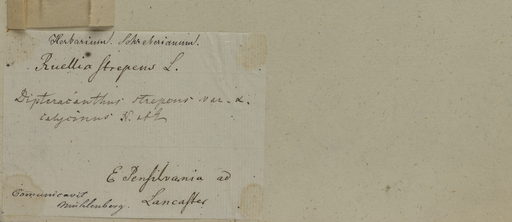 Herbarium Schreberianum.
Ruellia strepens L.
Dipteracanthus strepens var. α.
calycinus N. ab E
E Pensilvania ad
Lancaster
Comunicavit
Muhlenberg.